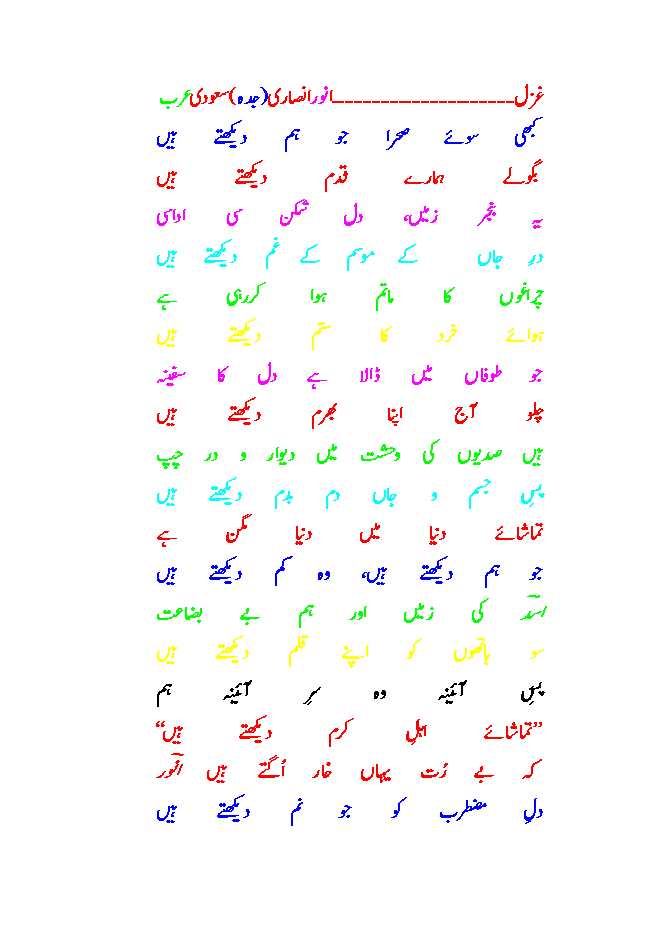 غزل____________________انور انصاری(جدہ)سعودی عرب
کبھی سوئے صحرا جو ہم دیکھتے ہیں
بگولے ہمارے قدم دیکھتے ہیں
یہ بنجر زمیں، دل شکن سی اداسی
درِ جاں کے موسم کے غم دیکھتے ہیں
چراغوں کا ماتم ہوا کررہی ہے
ہوائے خرد کا ستم دیکھتے ہیں
جو طوفاں میں ڈالا ہے دل کا سفینہ
چلو آج اپنا بھرم دیکھتے ہیں
ہیں صدیوں کی وحشت میں دیوار و در چپ
پسِ جسم و جاں دم بدم دیکھتے ہیں
تماشائے دنیا میں دنیا مگن ہے
جو ہم دیکھتے ہیں، وہ کم دیکھتے ہیں
اسدؔ کی زمیں اور ہم بے بضاعت
سو ہاتھوں کو اپنے قلم دیکھتے ہیں
پسِ آئینہ وہ سرِ آئینہ ہم
”تماشائے اہلِ کرم دیکھتے ہیں“
کہ بے رُت یہاں خار اُگتے ہیں انورؔ
دلِ مضطرب کو جو نم دیکھتے ہیں